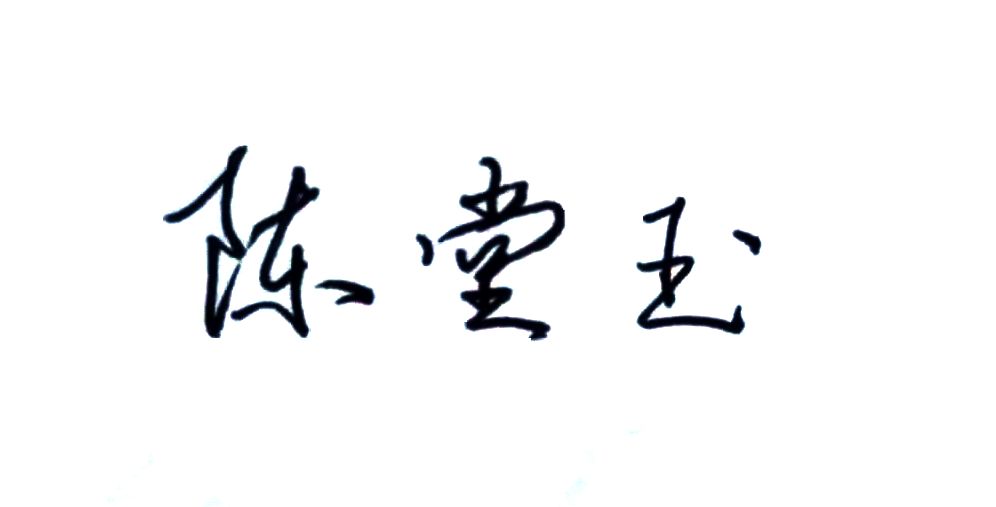 陈堂玉